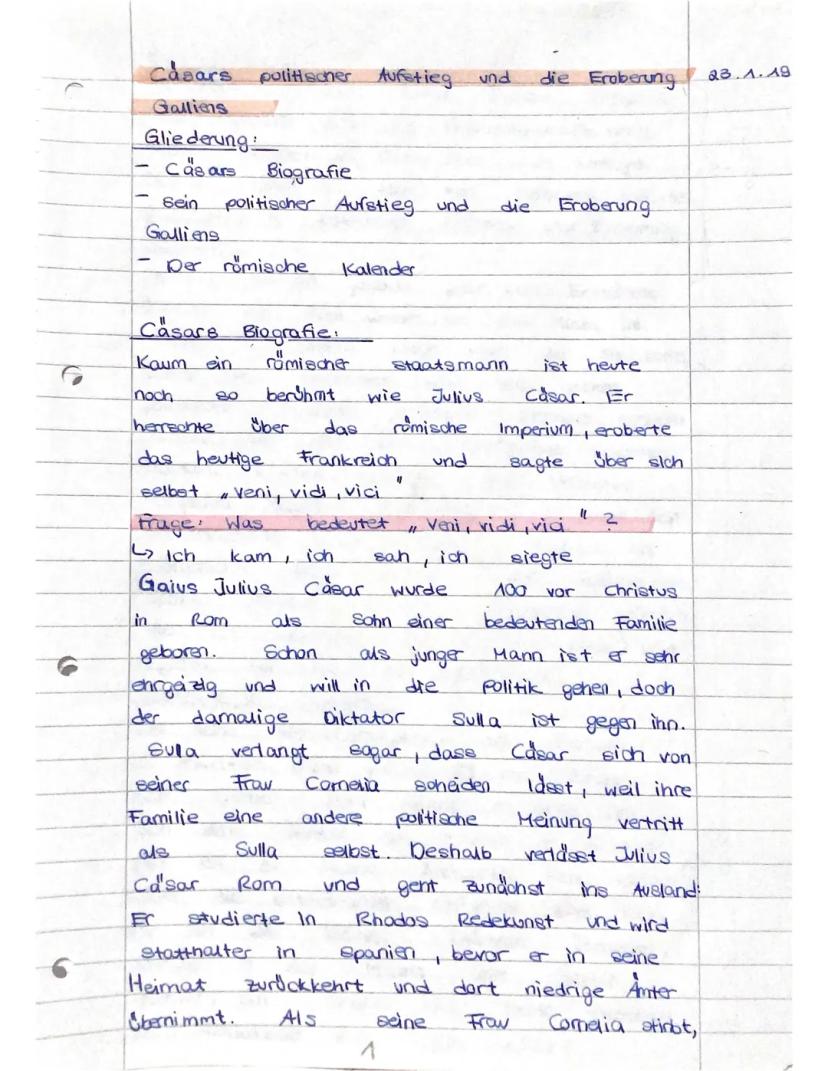 Cäsars politischer Aufstieg und die Eroberung 23.1.19
Galliens
Gliederung:
- Cäsars Biografie
- Sein politischer Aufstieg und die Eroberung
Galliens
- Der römische Kalender
Cäsars Biografie:
Kaum ein römischer Staatsmann ist heute
noch so berühmt wie Julius Cäsar. Er
herrschte über das römische Imperium, eroberte
das heutige Frankreich und sagte über sich
selbst „veni, vidi, vici"
Frage: Was bedeutet „veni, vidi, vici" ?
↳ Ich kam, ich sah, ich siegte
Gaius Julius Cäsar wurde 100 vor Christus
in Rom als Sohn einer bedeutenden Familie
geboren. Schon als junger Mann ist er sehr
ehrgäzig und will in die Politik gehen, doch
der damalige Diktator Sulla ist gegen ihn.
Sula verlangt sogar, dass Cäsar sich von
seiner Frau Cornelia scheiden lässt, weil ihre
Familie eine andere politische Meinung vertritt
als Sulla selbst. Deshalb verlässt Julius
Cäsar Rom und geht zunächst ins Ausland:
Er studierte in Rhodos Redekunst und wird
Statthalter in Spanien, bevor er in seine
Heimat zurückkehrt und dort niedrige Ämter
übernimmt. Als seine Frau Cornelia stirbt,
1